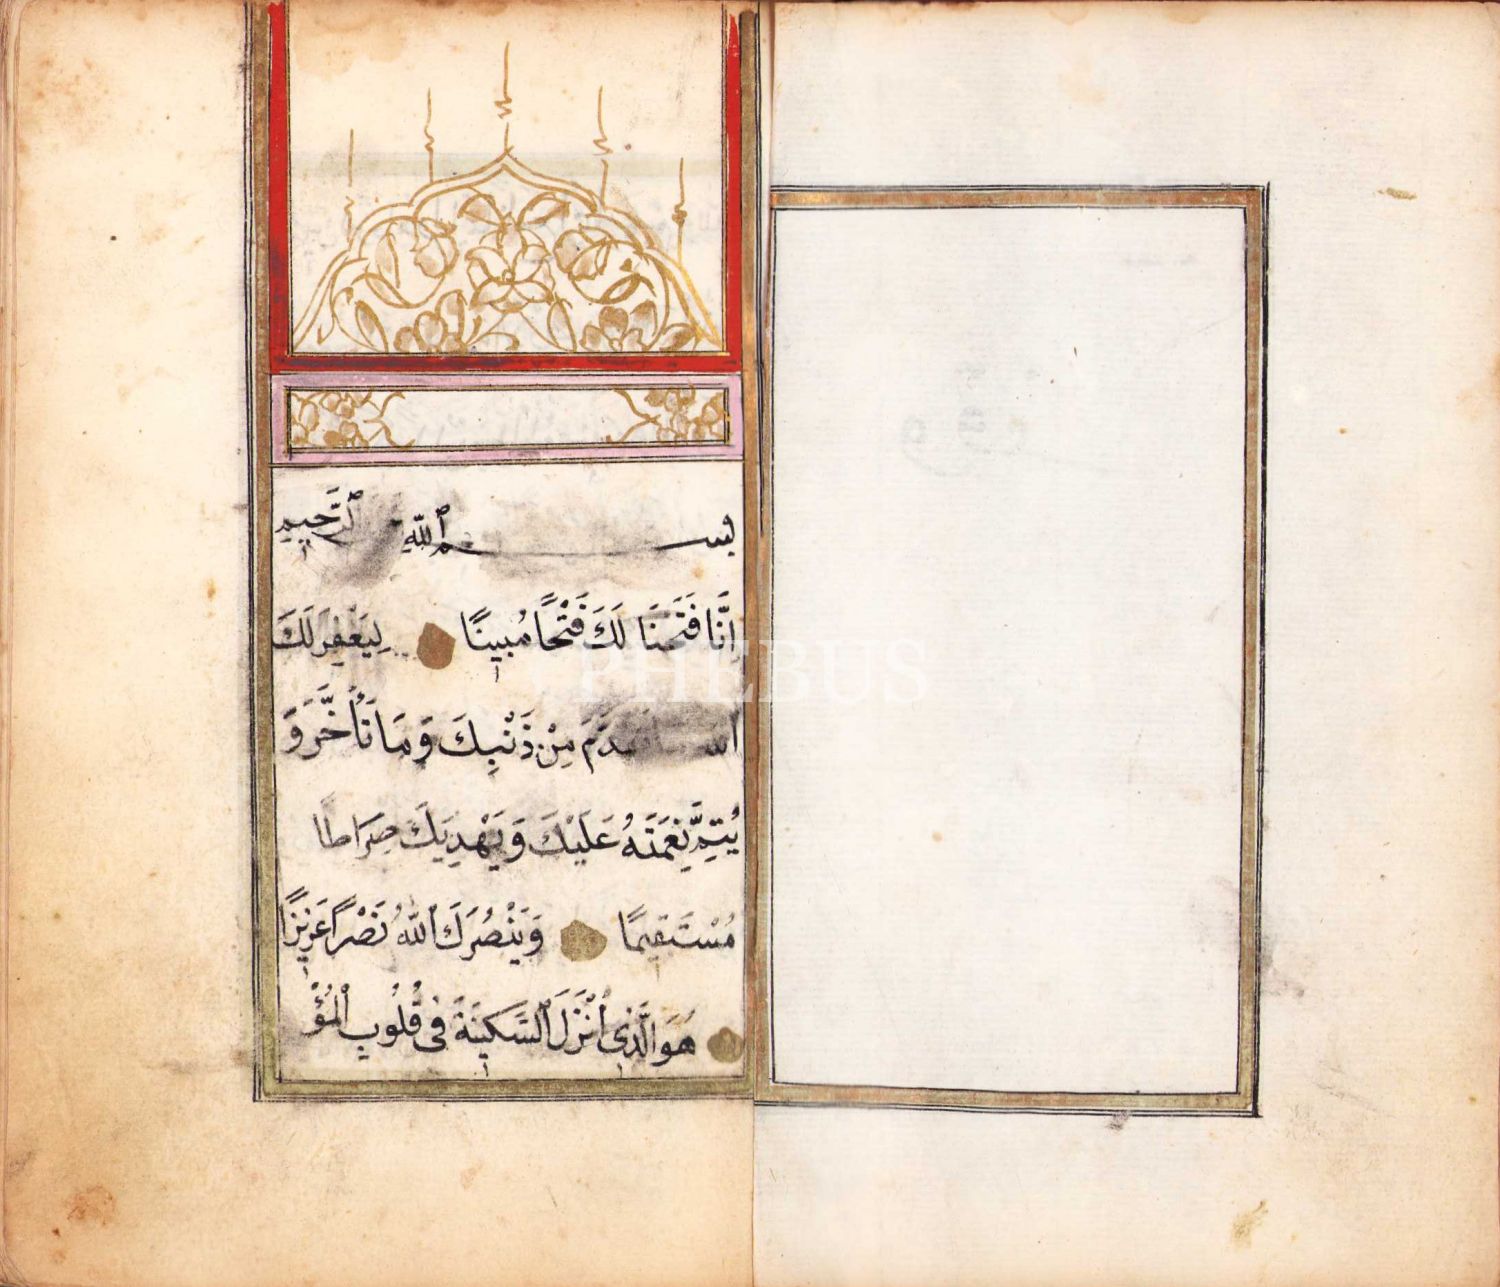 بِسْمِ ٱللّٰهِ ٱلرَّحِيمِ
اِنَّا فَتَحْنَا لَكَ فَتْحًا مُبِينًا لِيَغْفِرَ لَكَ
مِنْ ذَنْبِكَ وَمَا تَأَخَّرَ وَ
يُتِمَّ نِعْمَتَهُ عَلَيْكَ وَيَهْدِيَكَ صِرَاطًا
مُسْتَقِيمًا وَيَنْصُرَكَ ٱللّٰهُ نَصْرًا عَزِيزًا
هُوَ الَّذِي أَنْزَلَ ٱلسَّكِينَةَ فِي قُلُوبِ ٱلْمُؤْ
PHEBUS